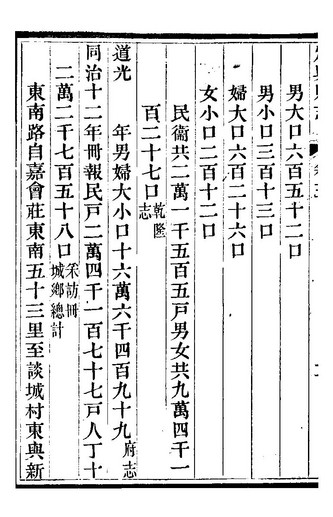 男大口六百五十二口
男小口三百十三口
婦大口六百二十六口
女小口二百十二口
民衞共二萬一千五百五戸男女共九萬四千一
百二十七口乾隆志
道光　年男婦大小口十六萬六千四百九十九府志
同治十二年冊報民戸二萬四千一百七十七戸人丁十
二萬二千七百五十八口采訪冊城鄉總計
東南路自嘉會莊東南五十三里至談城村東與新